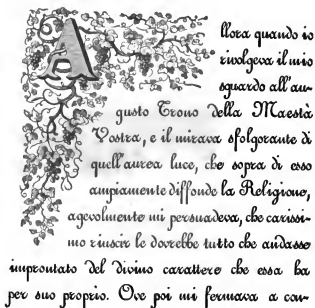 Allora quando io
rivolgeva il mio
sguardo all'au-
gusto Trono della Maestà
Vostra, e il mirava sfolgorante di
quell'aurea luce, che sopra di esso
ampiamente diffonde la Religione,
agevolmente mi persuadeva, che carissi-
mo riuscir le dovrebbe tutto che andasse
improntato del divino carattere che essa ha
per suo proprio. Ove poi mi fermava a con-